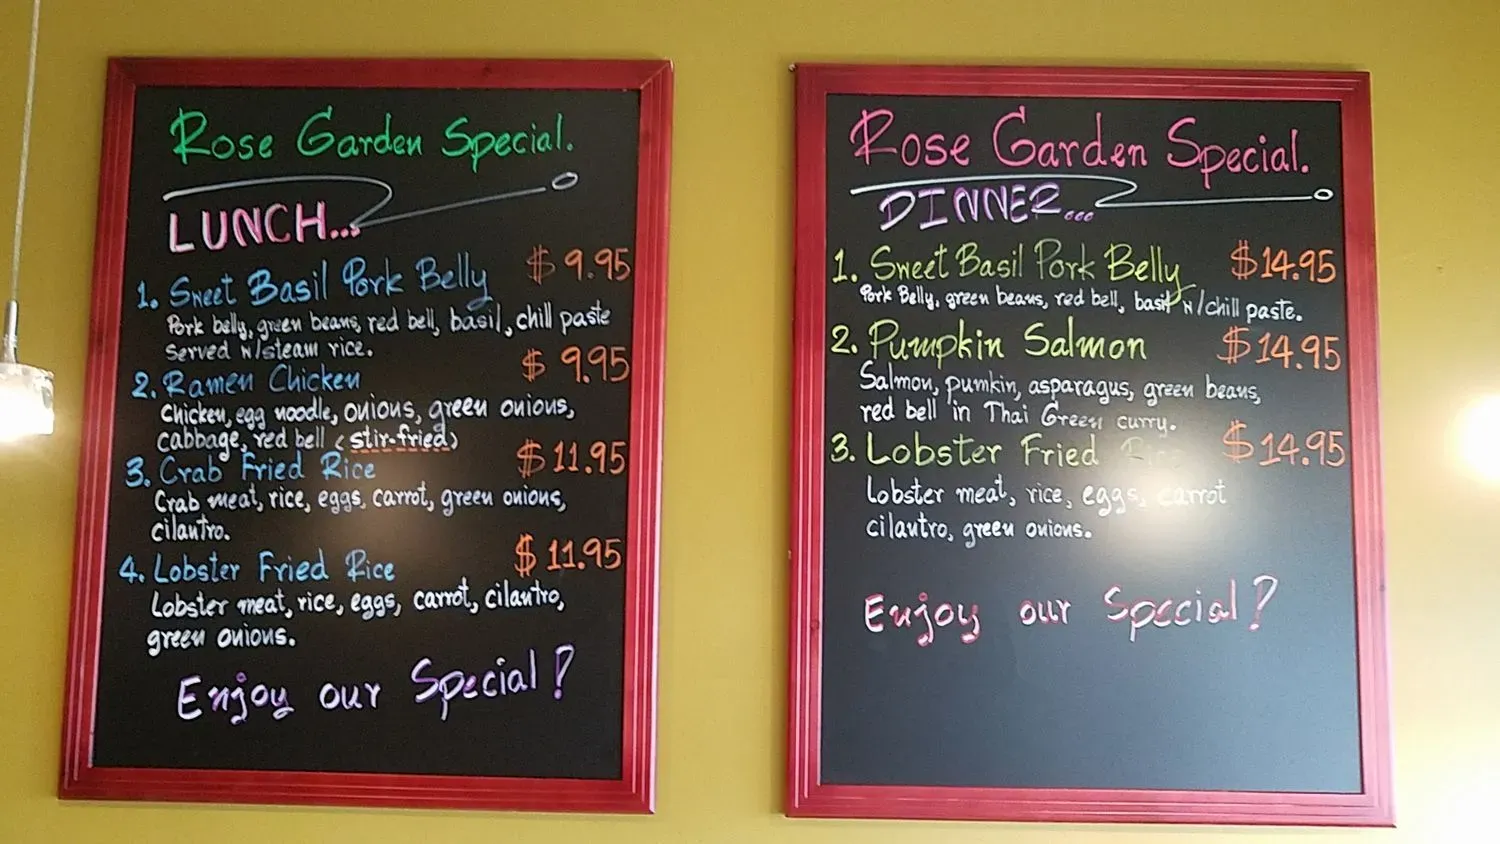 Rose Garden Special.
LUNCH...
1. Sweet Basil Pork Belly $9.95
Pork belly, green beans, red bell, basil, chill paste
Served w/steam rice.
2. Ramen Chicken $9.95
Chicken, egg noodle, onions, green onions,
cabbage, red bell (stir-fried)
3. Crab Fried Rice $11.95
Crab meat, rice, eggs, carrot, green onions,
cilantro.
4. Lobster Fried Rice $11.95
Lobster meat, rice, eggs, carrot, cilantro,
green onions.
Enjoy our Special!
Rose Garden Special.
DINNER...
1. Sweet Basil Pork Belly $14.95
Pork Belly, green beans, red bell, basil w/chill paste.
2. Pumpkin Salmon $14.95
Salmon, pumkin, asparagus, green beans,
red bell in Thai Green curry.
3. Lobster Fried Rice $14.95
Lobster meat, rice, eggs, carrot
cilantro, green onions.
Enjoy our Special!